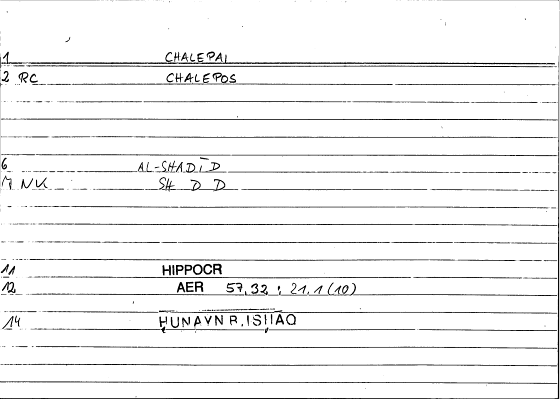 1 CHALEPAI
2 RC CHALEPOS
6 AL-SHADĪD
7 NK SH D D
11 HIPPOCR
12 AER 57,32 : 21,1 (10)
14 ḤUNAYN B. ISḤĀQ